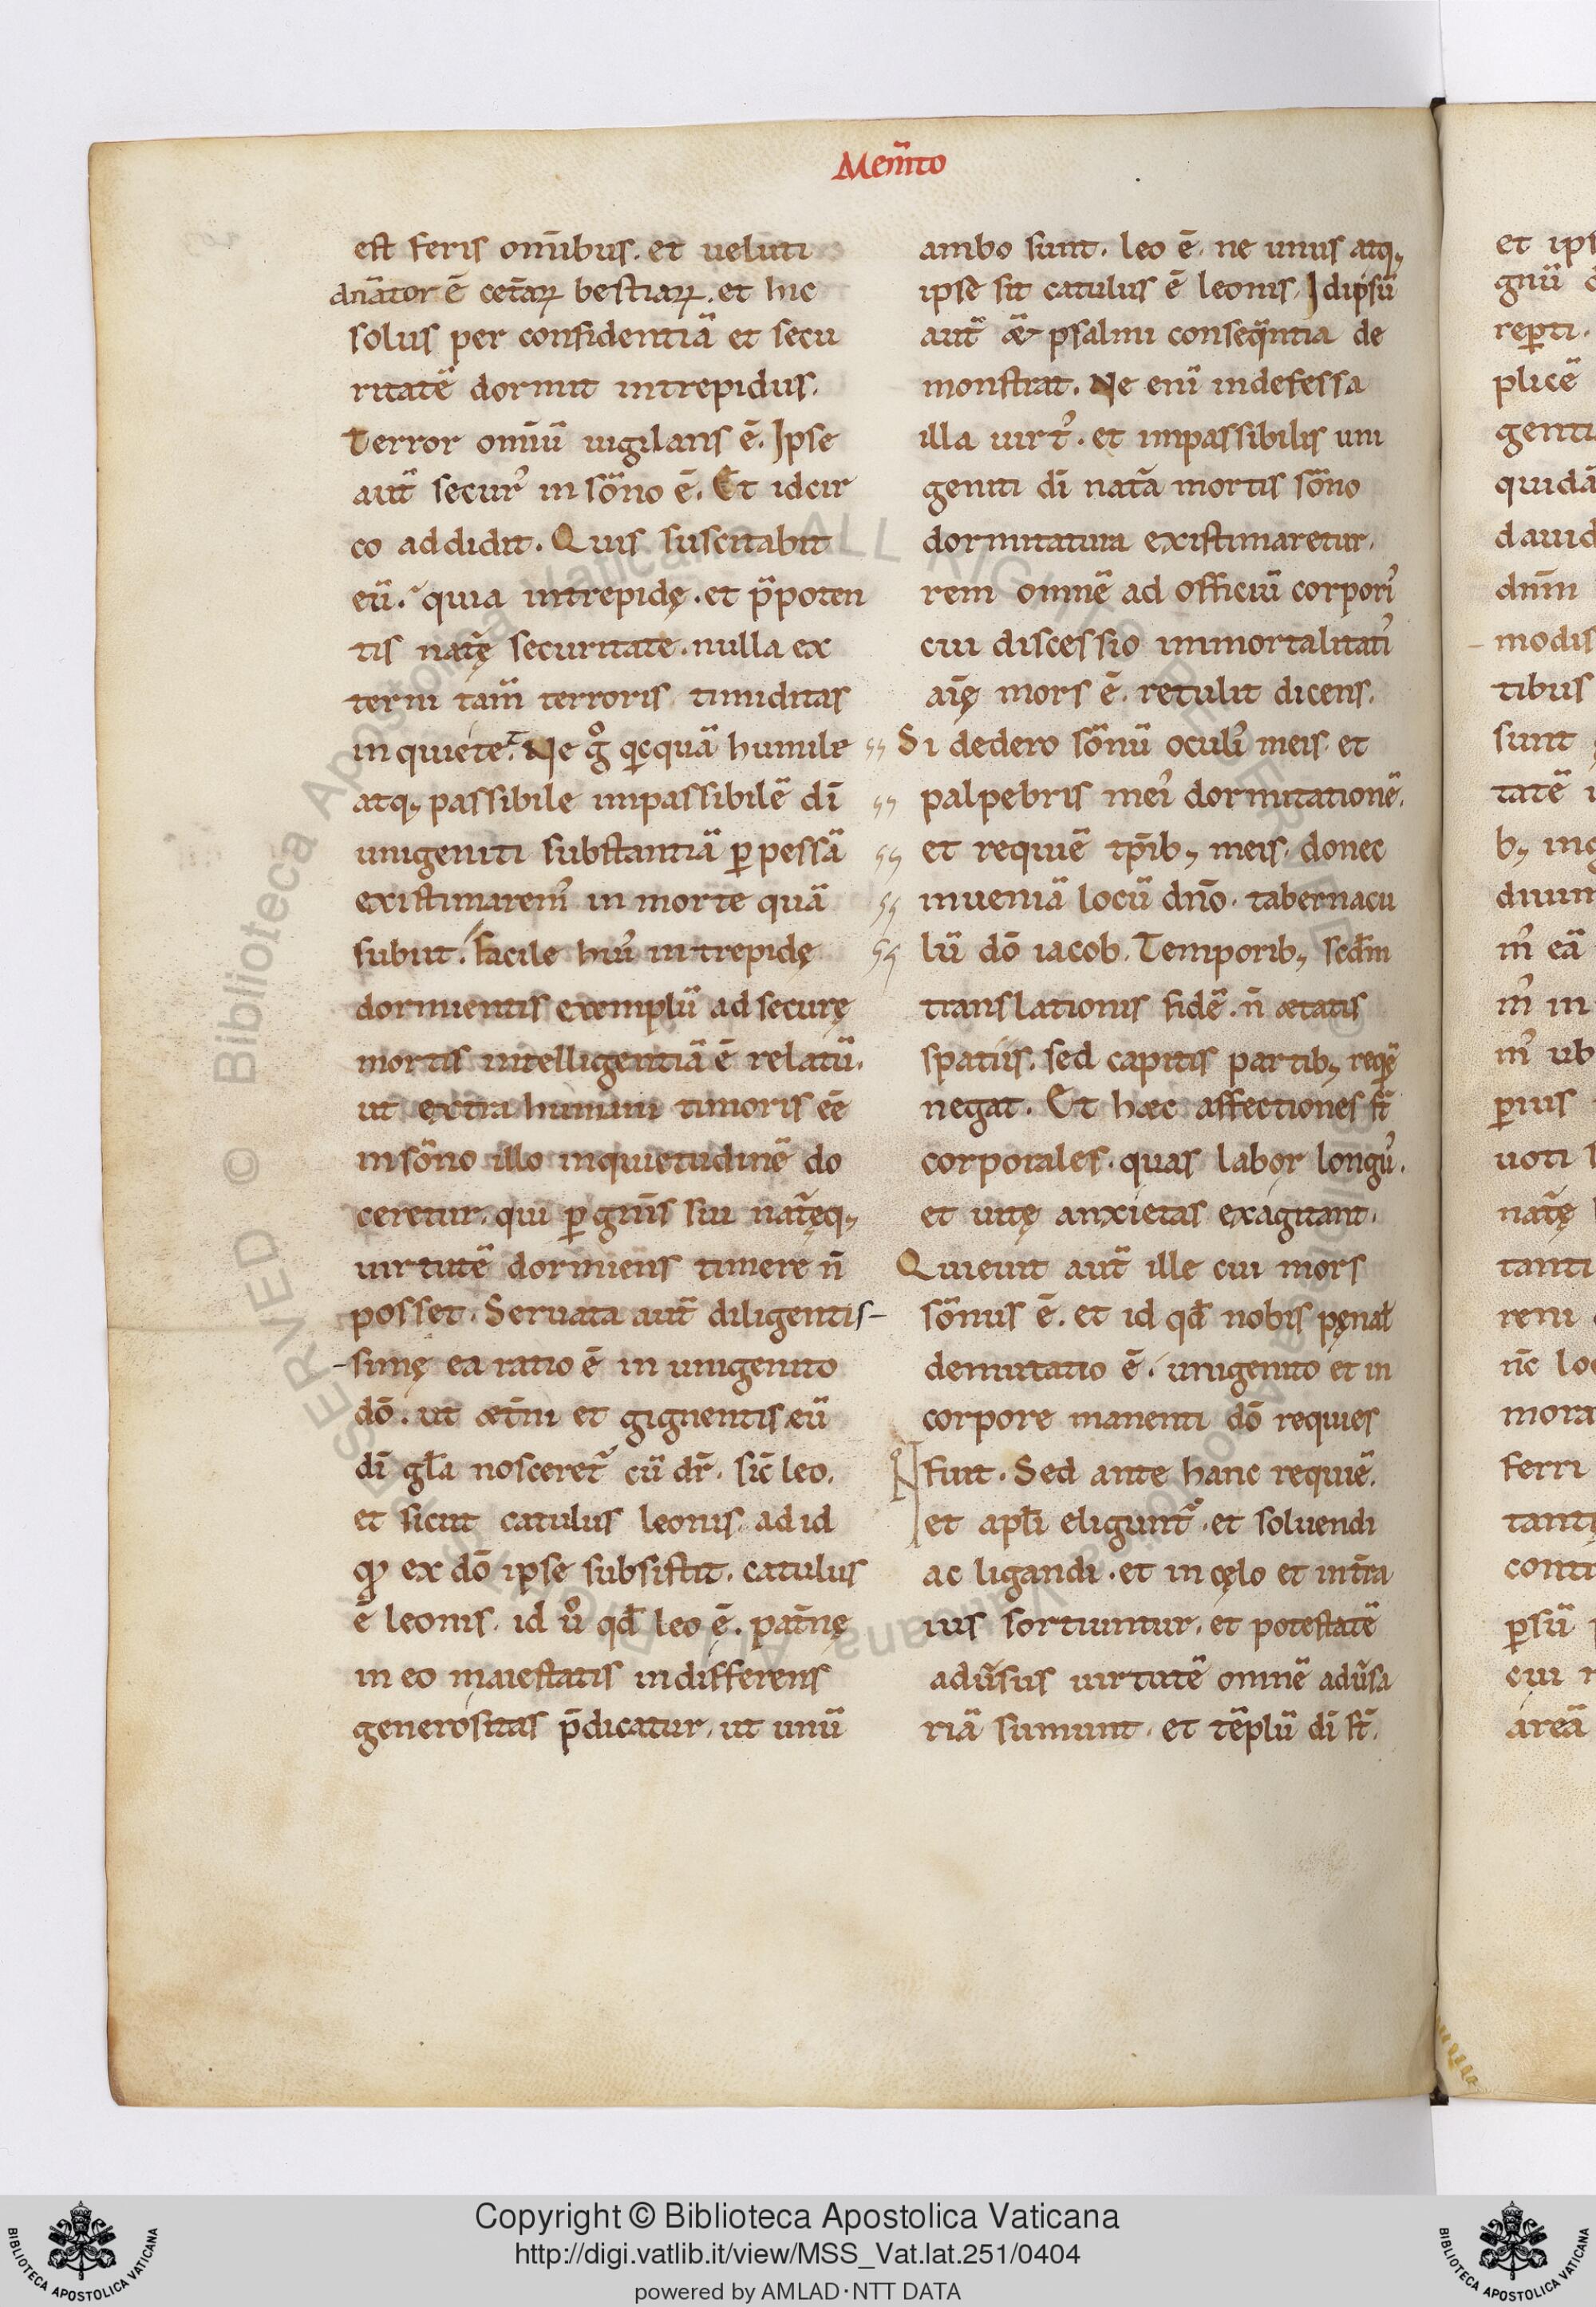 Mem̄to
est feris om̄ibus. et ueluti
dn̄ator ē cet̄aꝝ bestiaꝝ. et hic
solus per confidentiā et secu
ritatē dormit intrepidus.
Terror om̄iū uigilans ē. Ipse
aut̄ secur᾽ in sōno ē. Et idcir
co addidit. Quis suscitabit
eū. quia intrepidę. et p̄poten
tis nat̄ę securitate. nulla ex
terni tam̄ terroris timiditas
inquiete. Ne gͦ qͥcquā humile
atq; passibile impassibilē dī
unigeniti substantiā ꝑpessā
existimarem᾽ in morte quā
subiit. facile hui᾽ intrepidę
dormientis exemplū ad securę
mortis intelligentiā ē relatū.
ut extra humani timoris eē
in sōno illo inquietudinē do
ceretur. qui ꝑ gn̄is sui nat̄ęq;
uirtutē dormiens timere n̄
posset. Seruata aut̄ diligentis-
-simę ea ratio ē in unigenito
dō. ut æt̄ni et gignentis eū
dī gl̄a nosceret᾽ cū dr̄. sic̄ leo.
et sicut catulus leonis. ad id
qͦ ex dō ipse subsistit. catulus
ē leonis. id uͦ qd̄ leo ē. pat̄nę
in eo maiestatis indifferens
generositas p̄dicatur. ut unū
ambo sunt. leo ē. ne unus atq;
ipse sit catulus ē leonis. Idipsū
aut̄ æ psalmi conseqͣntia de
monstrat. Ne eni᾽ indefessa
illa uirt᾽. et impassibilis uni
geniti dī nat̄a mortis sōno
dormitatura existimaretur.
rem omnē ad officiū corpori᾽
cui discessio immortalitati᾽
aīę mors ē. retulit dicens.
Si dedero sōnū oculi᾽ meis et
palpebris mei᾽ dormitationē.
et requiē tp̄ib; meis. donec
inueniā locū dn̄o. tabernacu
lū dō iacob. Temporib; scd̄m
translationis fidē. n̄ ætatis
spatiis. sed capitis partib; reqͥē
negat. Et hæc affectiones st̄
corporales. quas labor longu᾽.
et uitę anxietas exagitant.
Quieuit aut̄ ille cui mors
sōnus ē. et id qd̄ nobis pęnal̄
demutatio ē. unigenito et in
corpore manenti dō requies
fuit. Sed ante hanc requiē.
et apl̄i eligunt᾽. et soluendi
ac ligandi. et in cęlo et in t̄ra
ius sortiuntur. et potestatē
adūsus uirtutē omnē adūsa
riā sumunt. et tēplū dī st̄.
Copyright © Biblioteca Apostolica Vaticana
http://digi.vatlib.it/view/MSS_Vat.lat.251/0404
powered by AMLAD·NTT DATA